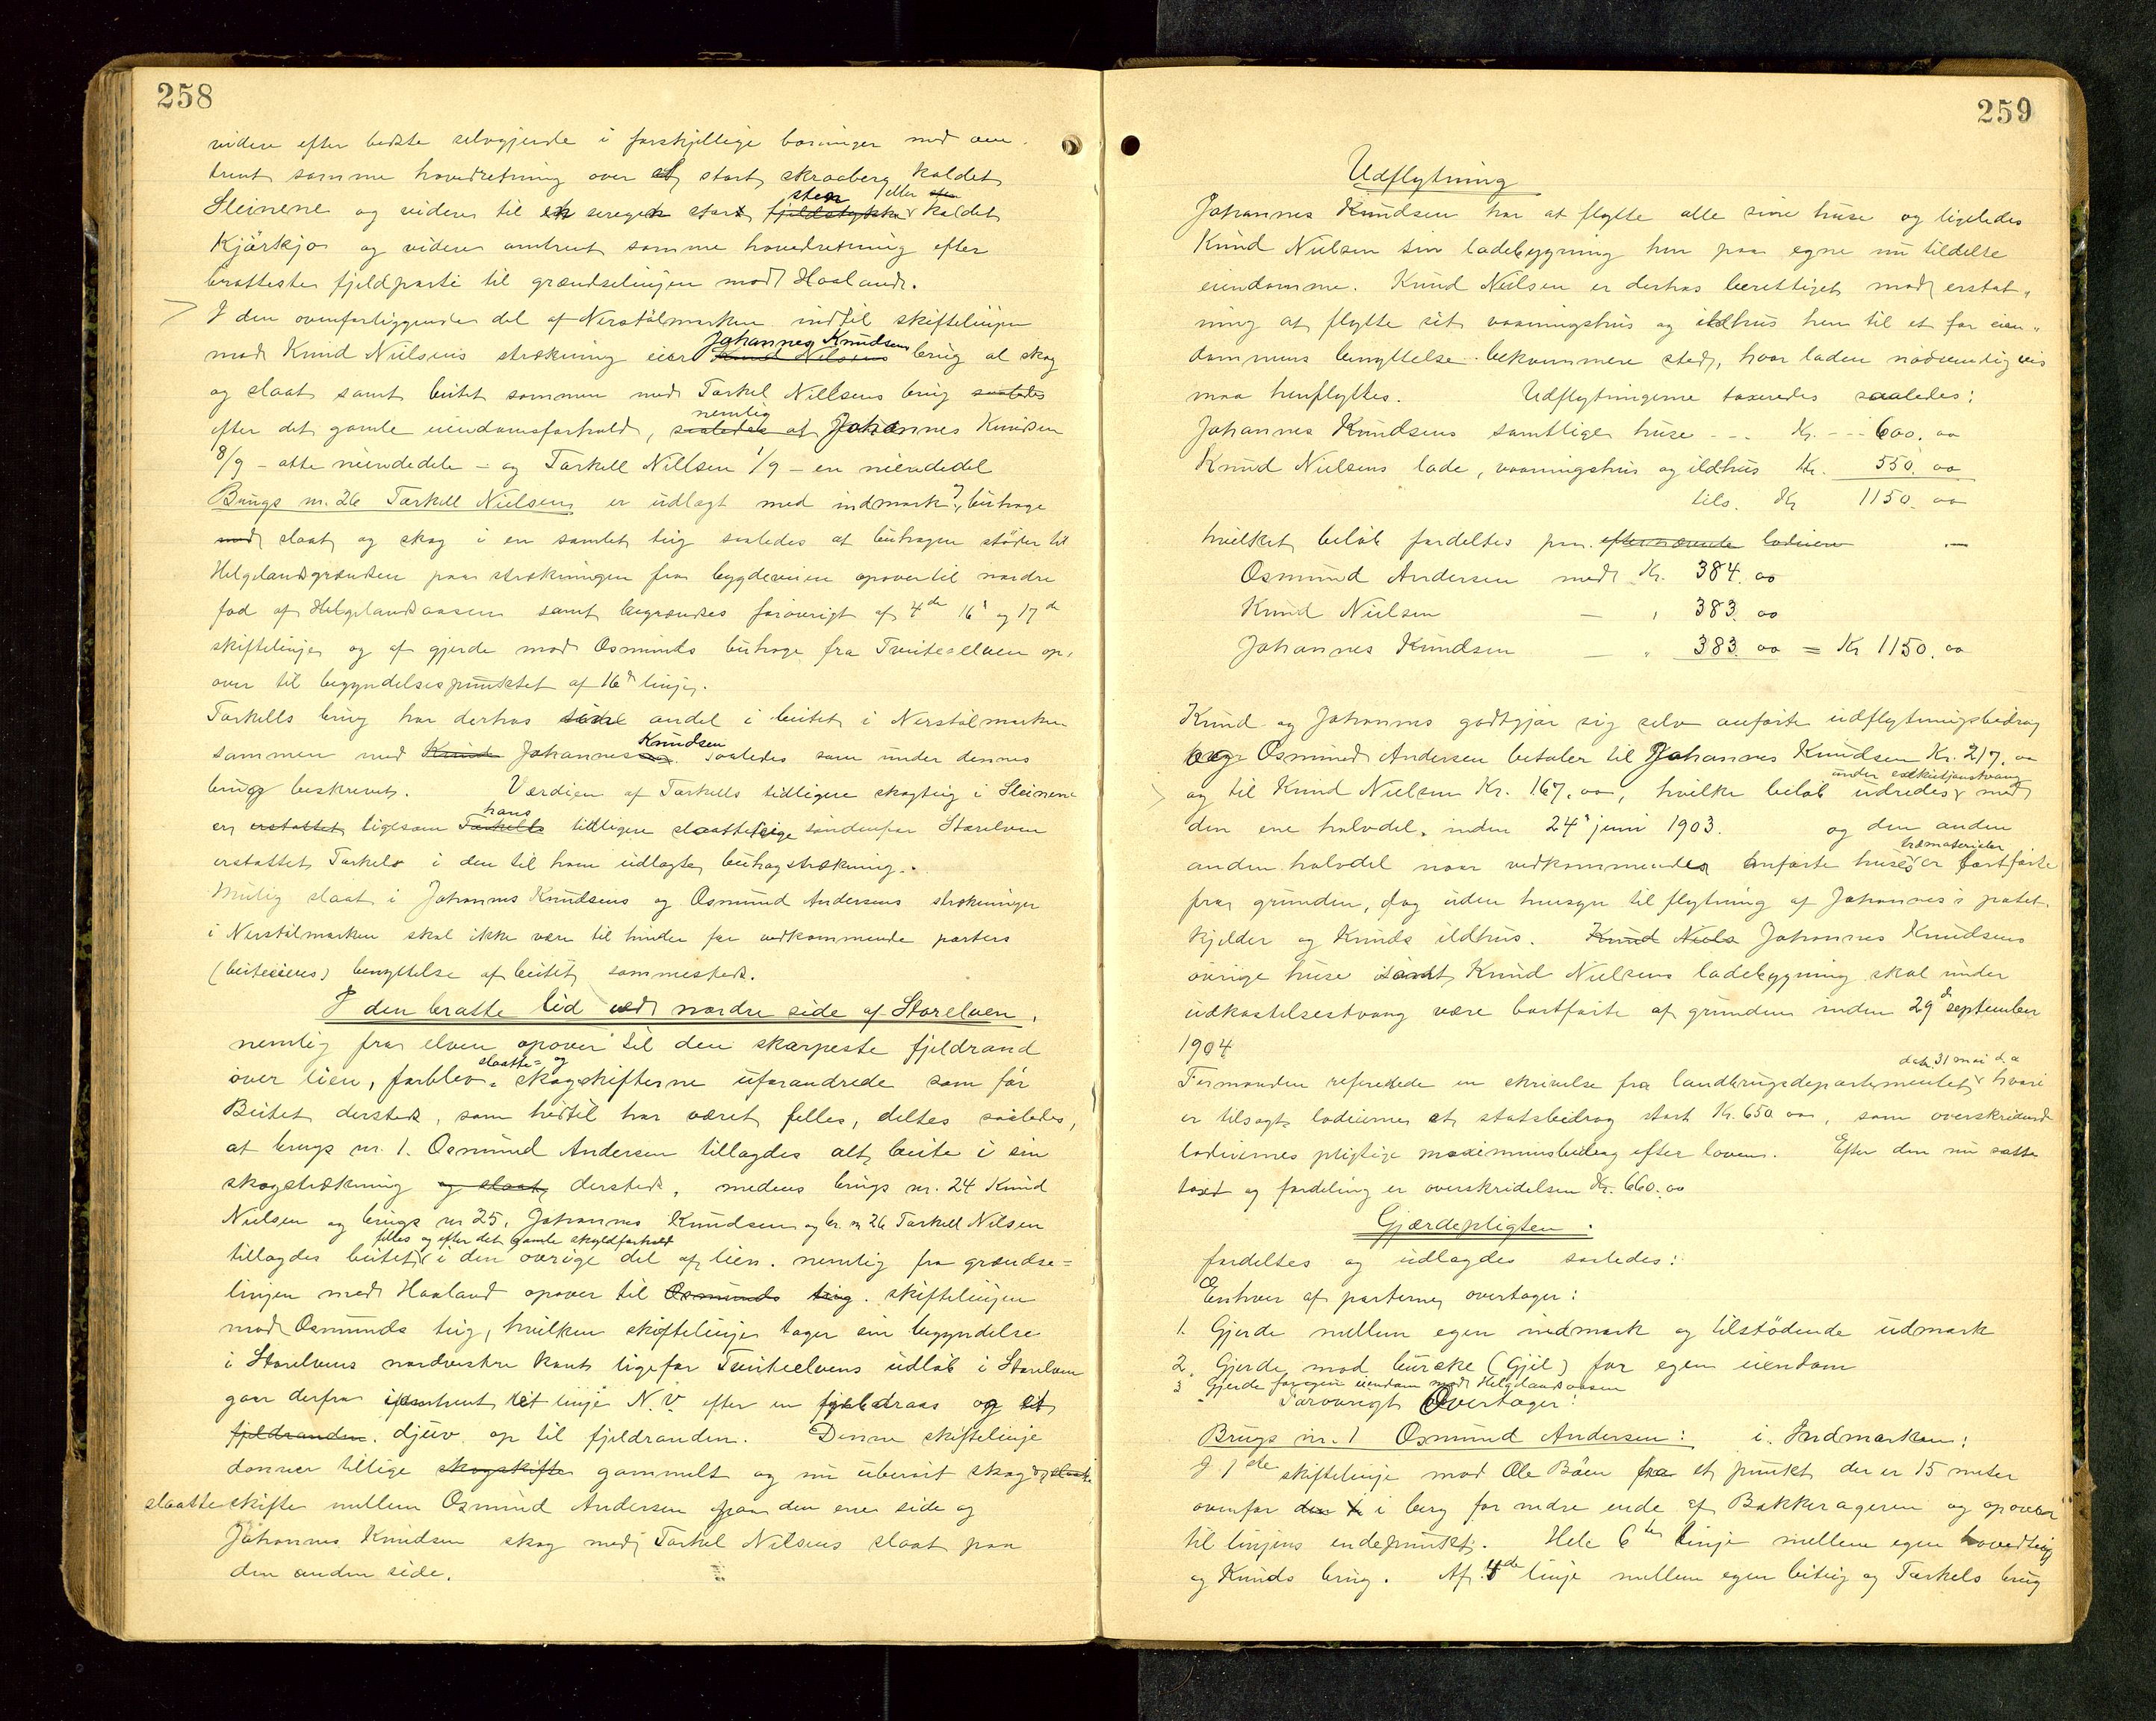 258
videre efter bedste selvgjerde i forskjellige bøininger med om-
trent samme hovedretning over et stort skraaberg kaldet
Sleinene og videre til en svegen stor fjeldstykke sten eller kaldet
Kjørkjo og videre omtrent samme hovedretning efter
bratteste fjeldparti til grændselinjen mod Haaland.
I den ovenforliggende del af Nerstølmarken indtil skiftelinjen
mod Knud Nielsens strækning eier Knud Nilsens Johannes Knudsens brug al skog
og slaat samt beitet sammen med Tarkel Nillsens brug saaledes
efter det gamle eiendomsforhold, saaledes at nemlig Johannes Knudsen
8/9 - otte niendedele - og Tarkell Nillsen 1/9 - en niendedel
Brugs nr. 26 Tarkell Nielsens er udlagt med indmark, buhage
med slaat og skog i en samlet teig saaledes at buhagen støder til
Helgelandsgrændsen paa strækningen fra bygdeveien opover til nordre
fod af Helgelandsaasen samt begrændses forøvrigt af 4de 16d og 17de
skiftelinje og af gjerde mod Osmunds buhage fra Tveiteelven op-
over til begyndelsespunktet af 16d linje.
Tarkells brug har derhos sin andel i beitet i Nerstølmarken
sammen med Knud Johannes Knudsen saaledes som under dennes
brug beskrevet. Værdien af Tarkells tidligere skogteig i Sleinene
er erstattet ligesom Tarkells hans tidligere slaatteteige søndenfor Storelven
erstattet Tarkel i den til ham udlagte buhagstrækning.
Mulig slaat i Johannes Knudsens og Osmund Andersens strækninger
i Nerstølmarken skal ikke være til hinder for vedkommende parters
(beiteeieres) benyttelse af beitet sammesteds.
I den bratte lid ved nordre side af Storelven,
nemlig fra elven opover til den skarpeste fjeldrand
over lien, forblev slaatte- og skogskifterne uforandrede som før
Beitet dersteds, som hidtil har været fælles, deltes saaledes,
at brugs nr. 1. Osmund Andersen tillagdes alt beite i sin
skogstrækning og slaat dersteds, medens brugs nr. 24 Knud
Nielsen og brugs nr 25, Johannes Knudsen og br. n 26 Tarkell Nilsen
tillagdes beitet fælles og efter det gamle skyldforhold i den øvrige del af lien. nemlig fra grændse=
linjen med Haaland opover til Osmunds teig. skiftelinjen
mod Osmunds teig, hvilken skiftelinje tager sin begyndelse
i Storelvens nordvestre kant ligefor Tveiteelvens udløb i Storelven
gaar derfra omtrent ret linje N.V. efter en fjeldraas og et
fjeldranden. djuv op til fjeldranden. Denne skiftelinje
danner tillige skogskifte gammelt og nu uberørt skog og slaatte
slaatteskifte mellem Osmund Andersen paa den ene side og
Johannes Knudsen skog med Tarkel Nilsens slaat paa
den anden side.
259
Udflytning
Johannes Knudsen har at flytte alle sine huse og ligeledes
Knud Nielsen sin ladebygning hen paa egne nu tildelte
eiendomme. Knud Nielsen er derhos berettiget mod erstat-
ning at flytte sit vaaningshus og ildhus hen til et for eien-
dommens benyttelse bekvemmere sted, hvor laden nødvendigvis
maa henflyttes. Udflytningerne taxeredes saaledes:
Johannes Knudsens samtlige huse - - - Kr. - - 600. oo
Knud Nielsens lade, vaaningshus og ildhus Kr. 550. oo
tils. Kr 1150. oo
hvilket beløb fordeltes paa efternævnte lodeiere
Osmund Andersen med Kr. 384. oo
Knud Nielsen - " 383. oo
Johannes Knudsen - " 383. oo = Kr 1150. oo
Knud og Johannes godtgjør sig selv anførte udflytningsbidrag
og Osmund Andersen betaler til Johannes Knudsen Kr. 217. oo
og til Knud Nielsen Kr. 167. oo, hvilke beløb udredes under exekutjonstvang med
den ene halvdel inden 24d juni 1903. og den anden
anden halvdel naar vedkommendes anførte huses træmaterialer er bortførte
fra grunden, dog uden hensyn til flytning af Johannes's potet-
kjelder og Knuds ildhus. Knud Niels Johannes Knudsens
øvrige huse samt Knud Nielsens ladebygning skal under
udkastelsestvang være bortførte af grunden inden 29d september
1904
Formanden refererede en skrivelse fra landbrugsdepartementet dat. 31 mai d.a hvori
er tilsagt lodeierne et statsbidrag stort Kr. 650 oo, som overskridende
lodeiernes pligtige maximumsbidrag efter loven. Efter den nu satte
taxt og fordeling er overskridelsen Kr. 660. oo
Gjærdepligten:
fordeltes og udlagdes saaledes:
Enhver af parterne overtager:
1. Gjerde mellem egen indmark og tilstødende udmark
2. Gjerde mod buræke (Gjil) for egen eiendom
3 Gjerde for egen eiendom mod Helgelandsaasen
Forøvrigt Overtager:
Brugs nr. 1 Osmund Andersen: i. Indmarken:
I 1ste skiftelinje mod Ole Bøen fra et punkt der er 15 meter
ovenfor den x i berg for nedre ende af Bakkerageren og opover
til linjens endepunkt. Hele 6te linje mellem egen hovedteig
og Knuds brug. Af 4de linje mellem egen beiteig og Tarkels brug